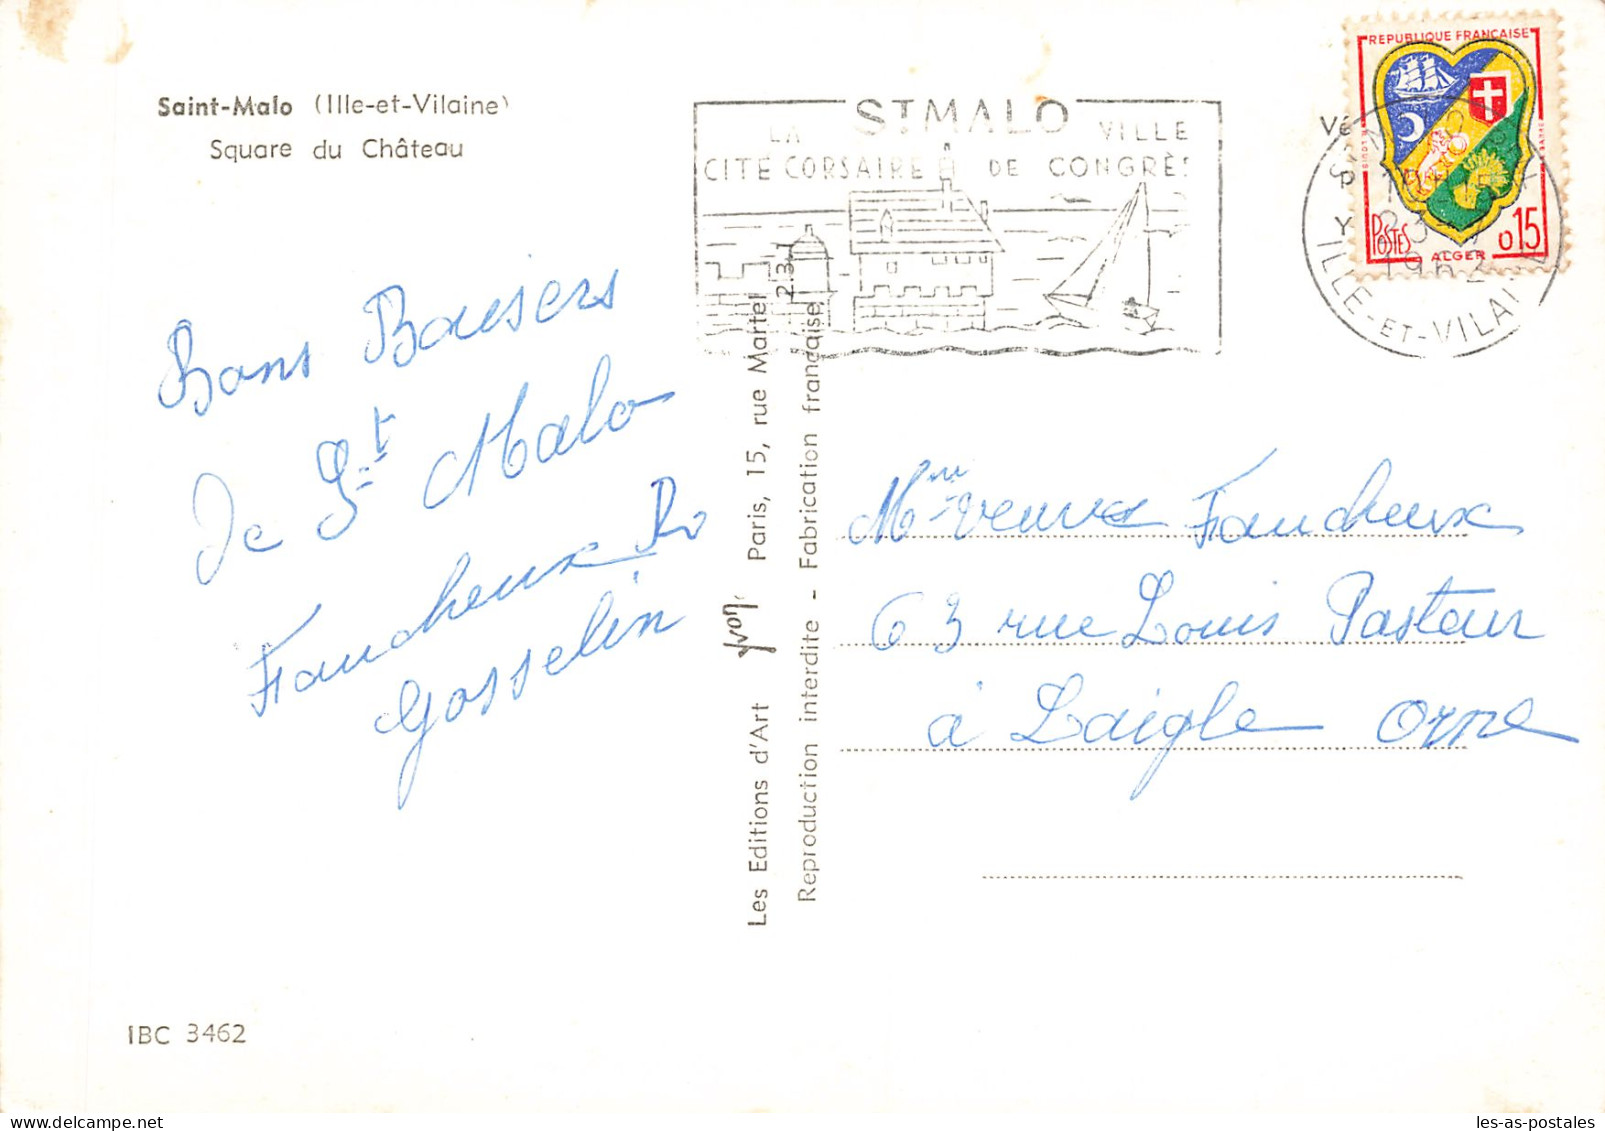 Saint-Malo (Ille-et-Vilaine)
Square du Château
Bons Baisers
de St Malo
Faucheux
Gosselin
IBC 3462
Les Editions d'Art Yvon Paris, 15, rue Martel
Reproduction interdite - Fabrication française
231
ST MALO
LA VILLE
CITE CORSAIRE DE CONGRÈS
REPUBLIQUE FRANÇAISE
POSTES
ALGER
0,15
1962
ILLE-ET-VILAINE
Mme veuve Faucheux
63 rue Louis Pasteur
à Laigle Orne
les-as-postales